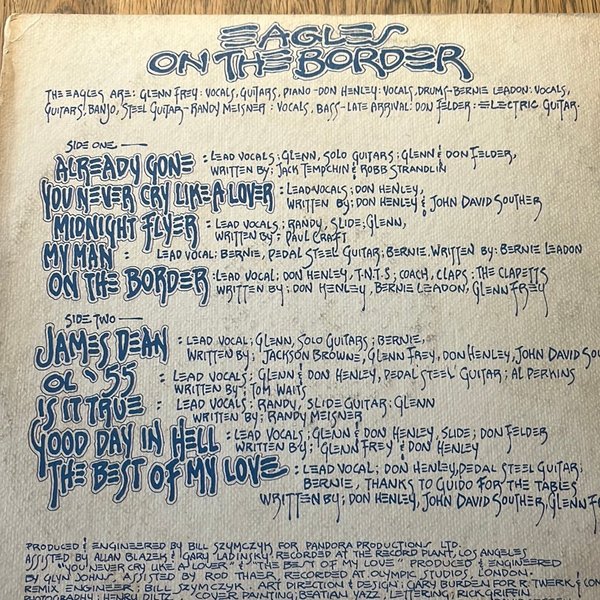 EAGLES
ON THE BORDER
THE EAGLES ARE: GLENN FREY: VOCALS, GUITARS, PIANO-DON HENLEY: VOCALS, DRUMS-BERNIE LEADON: VOCALS,
GUITARS, BANJO, STEEL GUITAR-RANDY MEISNER: VOCALS, BASS-LATE ARRIVAL: DON FELDER: ELECTRIC GUITAR.
SIDE ONE
ALREADY GONE: LEAD VOCALS; GLENN, SOLO GUITARS; GLENN & DON FELDER,
WRITTEN BY; JACK TEMPCHIN & ROBB STRANDLIN
YOU NEVER CRY LIKE A LOVER: LEAD VOCALS; DON HENLEY,
WRITTEN BY; DON HENLEY & JOHN DAVID SOUTHER
MIDNIGHT FLYER: LEAD VOCALS; RANDY, SLIDE; GLENN,
WRITTEN BY; PAUL CRAFT
MY MAN: LEAD VOCAL: BERNIE, PEDAL STEEL GUITAR; BERNIE. WRITTEN BY: BERNIE LEADON
ON THE BORDER: LEAD VOCAL; DON HENLEY, T.N.T.S; COACH, CLAPS: THE CLAPETTS
WRITTEN BY; DON HENLEY, BERNIE LEADON, GLENN FREY
SIDE TWO
JAMES DEAN: LEAD VOCAL; GLENN, SOLO GUITARS; BERNIE,
WRITTEN BY; JACKSON BROWNE, GLENN FREY, DON HENLEY, JOHN DAVID SOU
OL' 55: LEAD VOCALS; GLENN & DON HENLEY, PEDAL STEEL GUITAR; AL PERKINS
WRITTEN BY; TOM WAITS
IS IT TRUE: LEAD VOCALS; RANDY, SLIDE GUITAR: GLENN
WRITTEN BY; RANDY MEISNER
GOOD DAY IN HELL: LEAD VOCALS; GLENN & DON HENLEY, SLIDE; DON FELDER
WRITTEN BY; GLENN FREY & DON HENLEY
THE BEST OF MY LOVE: LEAD VOCAL; DON HENLEY, PEDAL STEEL GUITAR;
BERNIE, THANKS TO GUIDO FOR THE TABLES
WRITTEN BY; DON HENLEY, JOHN DAVID SOUTHER, GLENN F
PRODUCED & ENGINEERED BY BILL SZYMCZYK FOR PANDORA PRODUCTIONS LTD.
ASSISTED BY ALLAN BLAZEK & GARY LADINSKY RECORDED AT THE RECORD PLANT, LOS ANGELES
"YOU NEVER CRY LIKE A LOVER" & "THE BEST OF MY LOVE" PRODUCED & ENGINEERED
BY GLYN JOHNS, ASSISTED BY ROD THAER, RECORDED AT OLYMPIC STUDIOS, LONDON.
REMIX ENGINEER; BILL SZYMCZYK. ART DIRECTION & DESIGN; GARY BURDEN FOR R. TWERK & CO
PHOTOGRAPHY; HENRY DILTZ. COVER PAINTING; BEATIAN YAZZ, LETTERING; RICK GRIFFIN